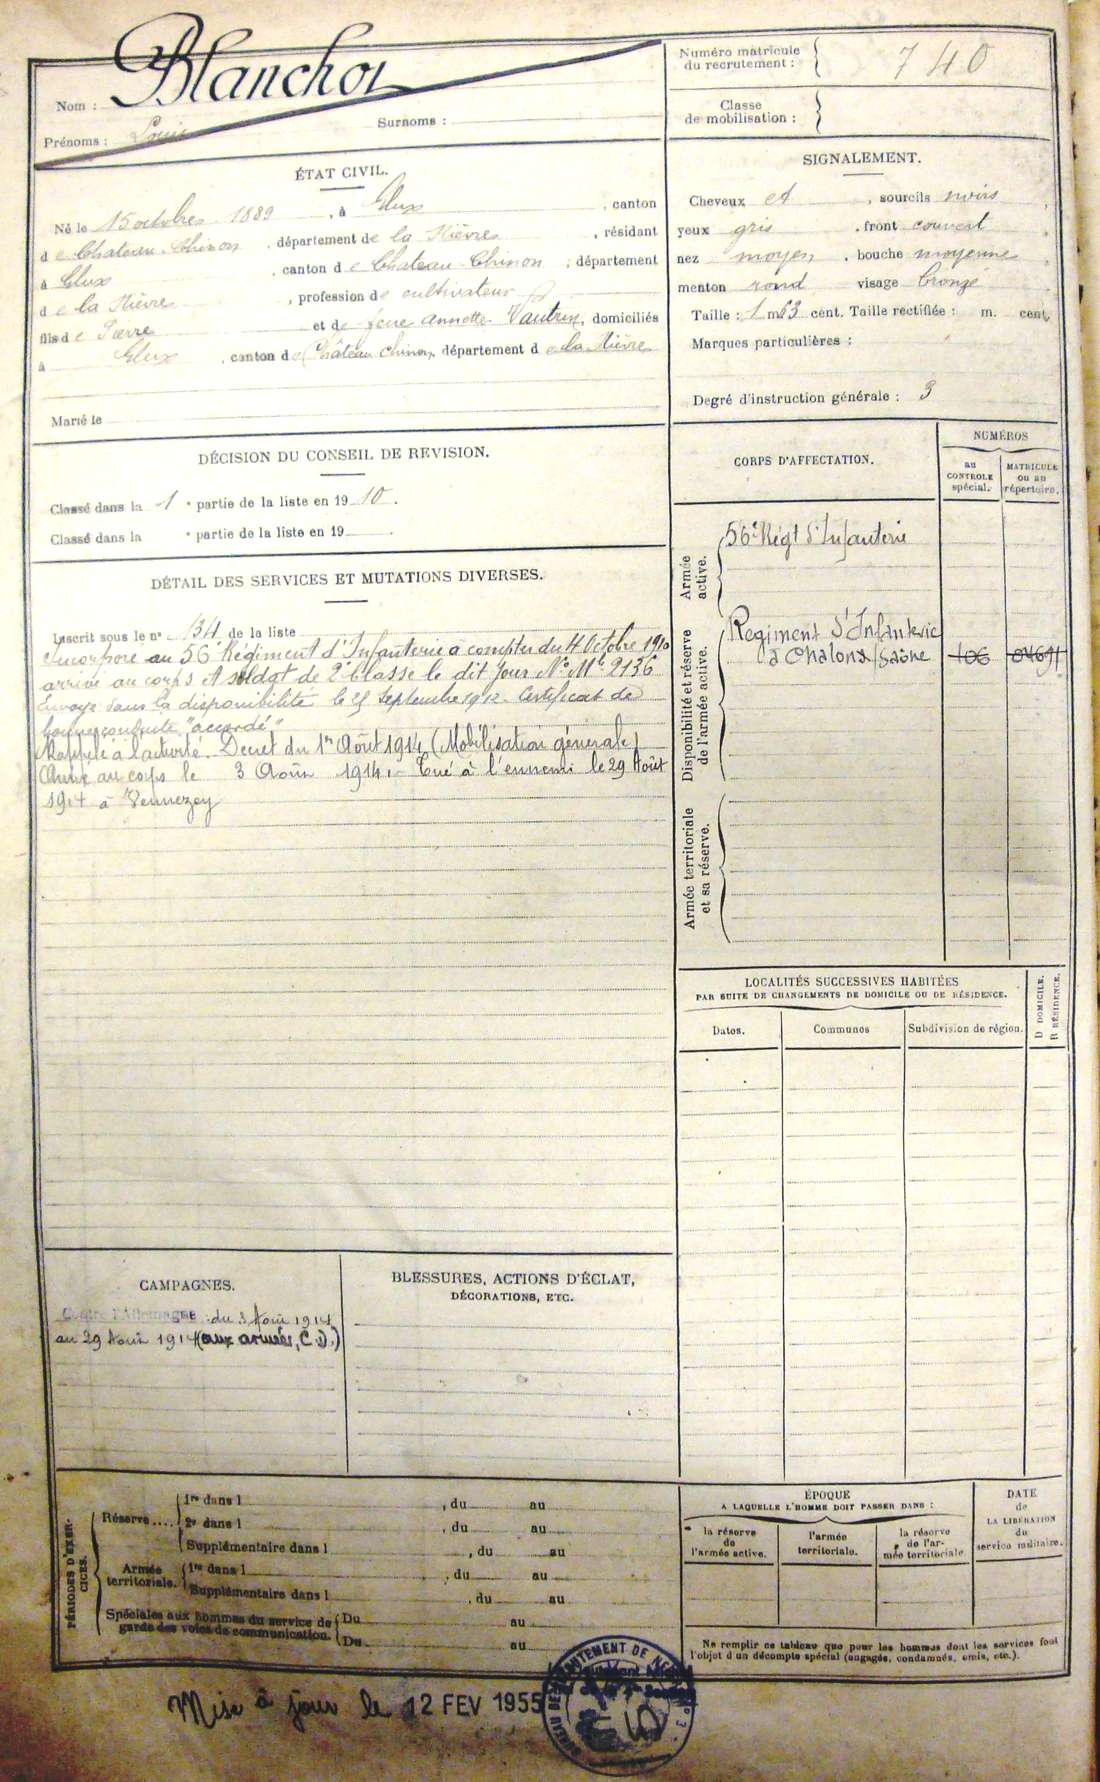 Nom : Blanchot
Prénoms : Louis Surnoms :
Numéro matricule
du recrutement : 740
Classe
de mobilisation :
ÉTAT CIVIL.
Né le 15 octobre 1889, à Glux, canton
de Chateau-Chinon, département de la Nièvre, résidant
à Glux, canton de Chateau-Chinon, département
de la Nièvre, profession de cultivateur
fils de Pierre et de feue Annette Vautrin, domiciliés
à Glux, canton de Château Chinon, département de la Nièvre
Marié le
SIGNALEMENT.
Cheveux et, sourcils noirs,
yeux gris, front couvert
nez moyen, bouche moyenne,
menton rond visage bronzé
Taille : 1 m 63 cent. Taille rectifiée : m. cent.
Marques particulières :
Degré d'instruction générale : 3
DÉCISION DU CONSEIL DE REVISION.
Classé dans la 1e partie de la liste en 1910.
Classé dans la e partie de la liste en 19 .
DÉTAIL DES SERVICES ET MUTATIONS DIVERSES.
Inscrit sous le n° 134 de la liste
Incorporé au 56e Régiment d'Infanterie à compter du 4 Octobre 1910
arrivé au corps et soldat de 2e Classe le dit jour No Mle 2136
Envoyé dans la disponibilité le 25 Septembre 1912. Certificat de
bonne conduite "accordé"
Rappelé à l'activité. Décret du 1er Août 1914 (Mobilisation générale)
Arrivé au corps le 3 Août 1914. - Tué à l'ennemi le 29 Août
1914 à Vennezey
CORPS D'AFFECTATION.
NUMÉROS
au
CONTROLE
spécial.
MATRICULE
ou au
répertoire.
Armée
active.
56e Régt d'Infanterie
Disponibilité et réserve
de l'armée active.
Régiment d'Infanterie
à Chalons s/Saône 106 04691
Armée territoriale
et sa réserve.
LOCALITÉS SUCCESSIVES HABITÉES
PAR SUITE DE CHANGEMENTS DE DOMICILE OU DE RÉSIDENCE.
Dates.
Communes
Subdivision de région.
D DOMICILE.
R RÉSIDENCE.
CAMPAGNES.
Contre l'Allemagne : du 3 Août 1914
au 29 Août 1914 (aux armées, C.D.)
BLESSURES, ACTIONS D'ÉCLAT,
DÉCORATIONS, ETC.
PÉRIODES D'EXER-
CICES.
Réserve....
1re dans l , du au
2e dans l , du au
Supplémentaire dans l , du au
Armée
territoriale.
1re dans l , du au
Supplémentaire dans l , du au
Spéciales aux hommes du service de
garde des voies de communication.
Du au
Du au
ÉPOQUE
A LAQUELLE L'HOMME DOIT PASSER DANS :
la réserve
de
l'armée active.
l'armée
territoriale.
la réserve
de l'ar-
mée territoriale
DATE
de
LA LIBÉRATION
du
service militaire.
Ne remplir ce tableau que pour les hommes dont les services font
l'objet d'un décompte spécial (engagés, condamnés, omis, etc.).
Mise à jour le 12 FEV 1955